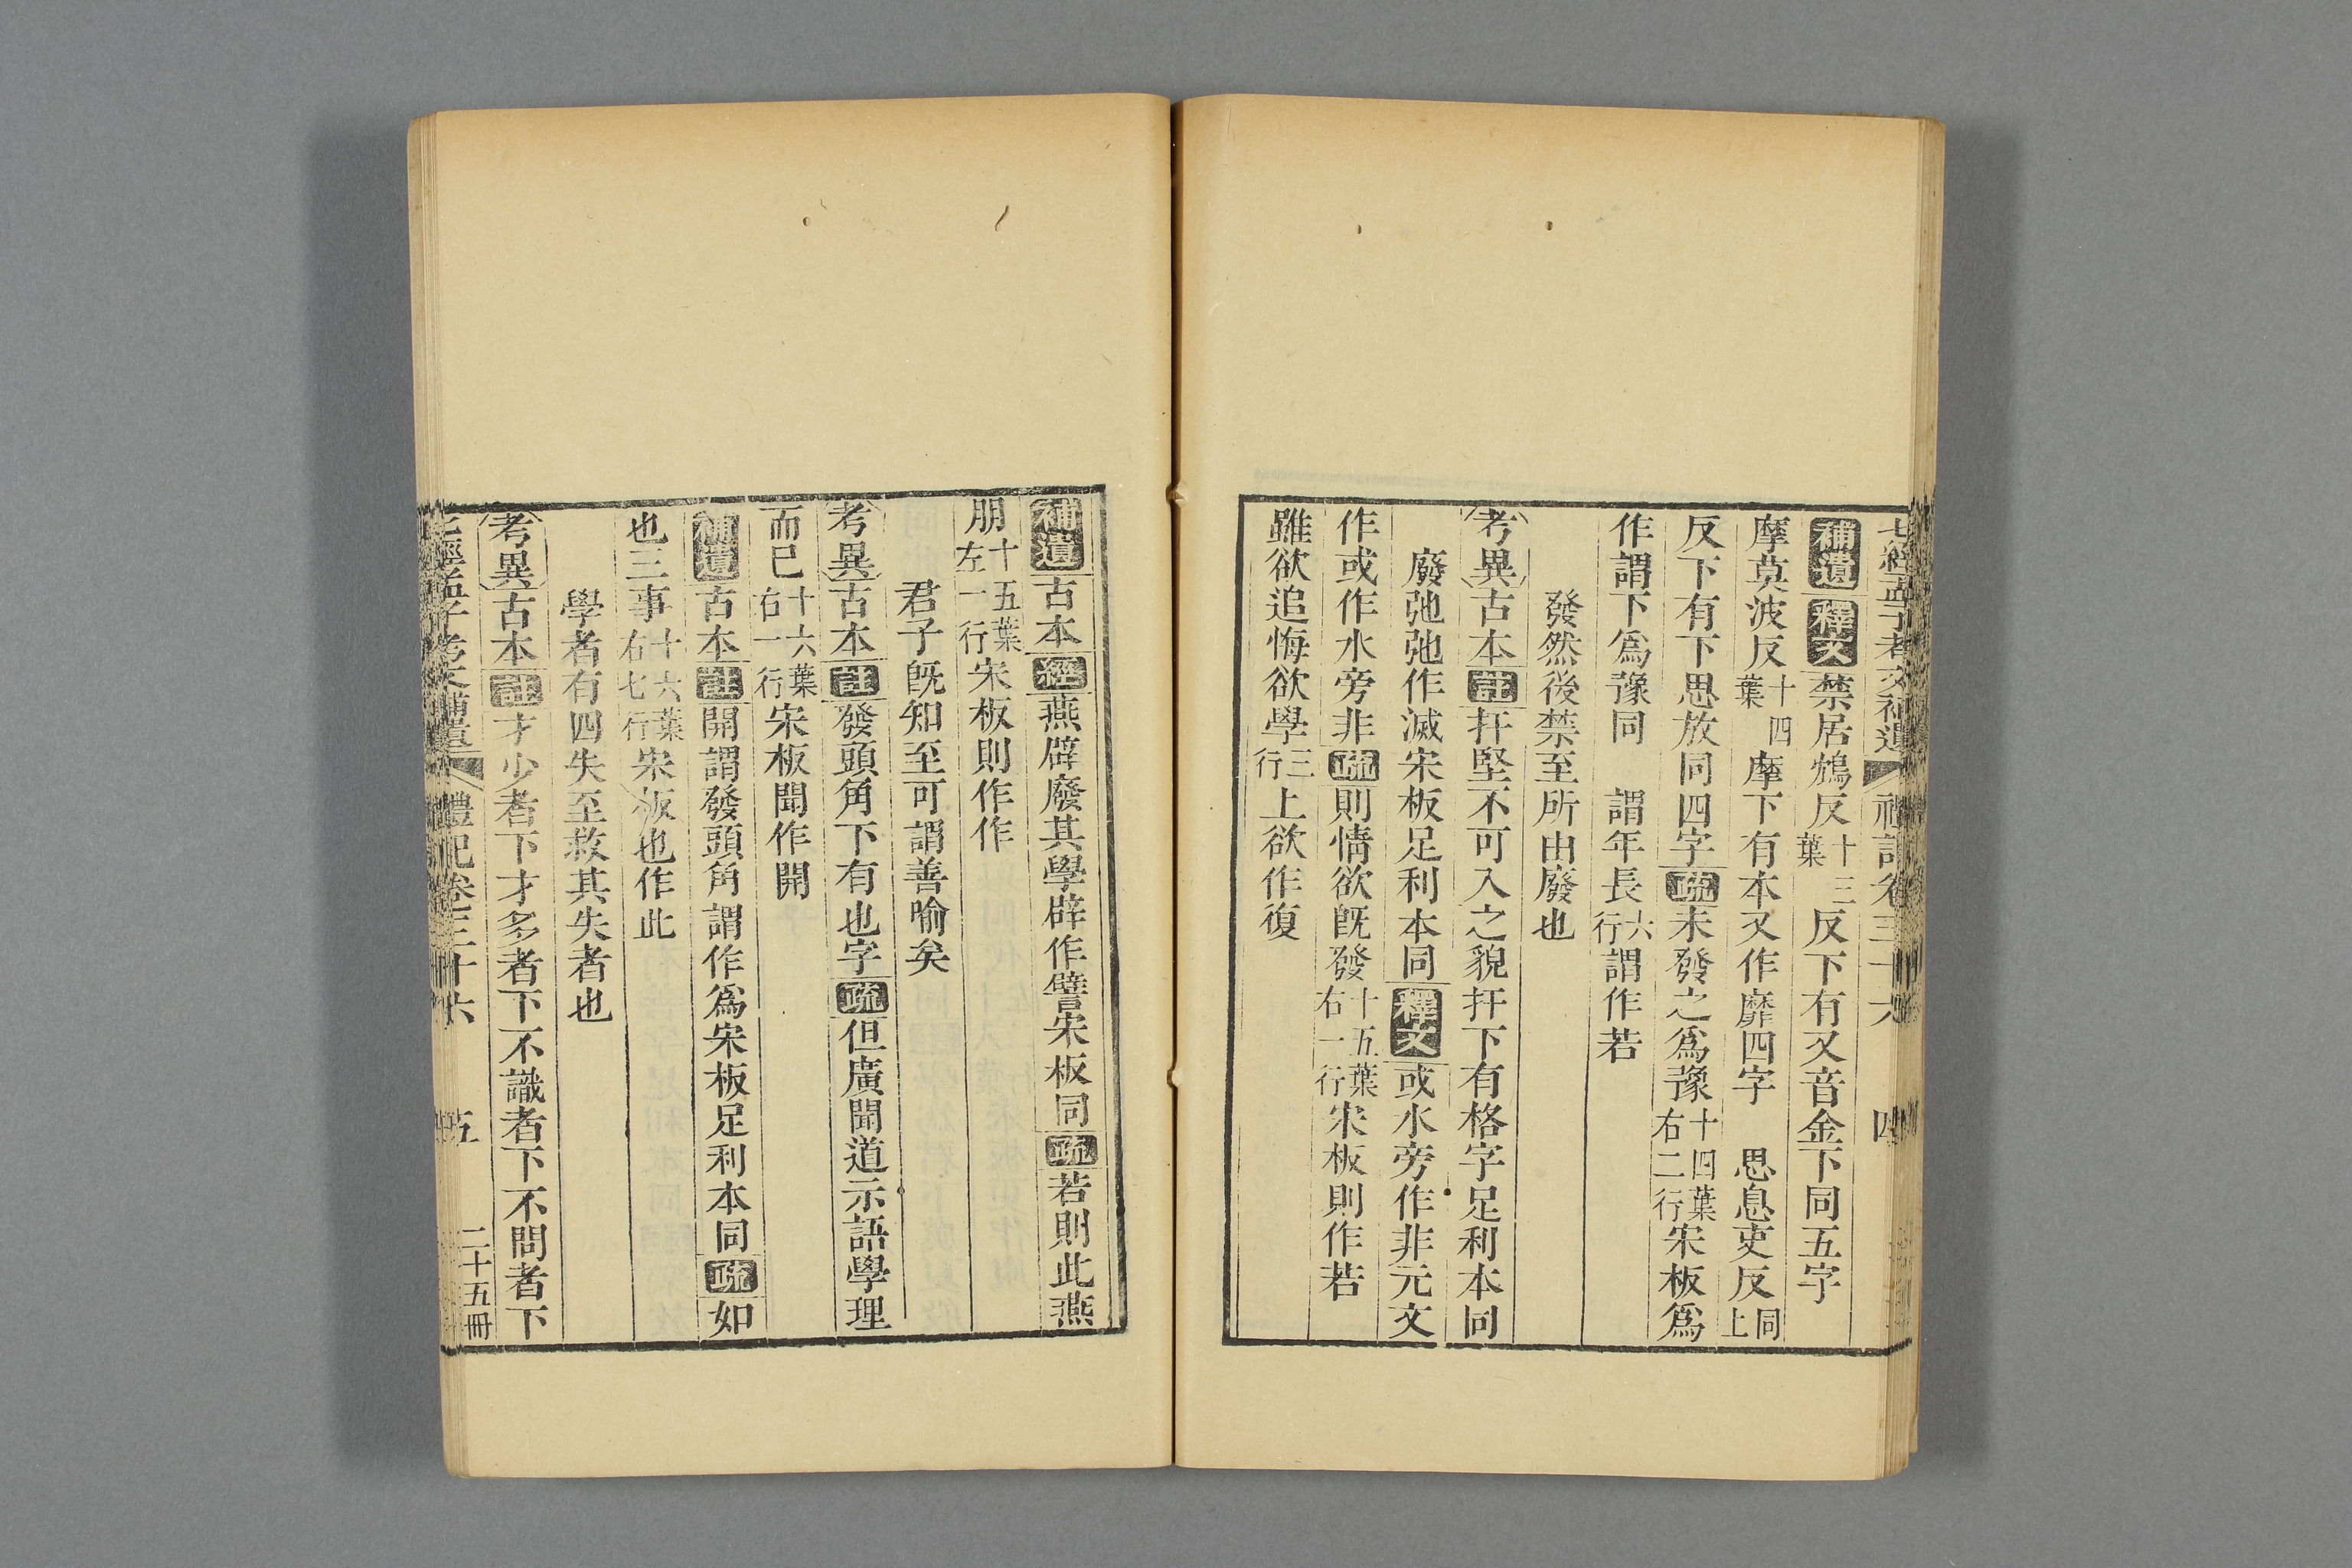 七經孟子考文補遺 禮記卷三十六 四
補遺釋文禁居鴆反十三葉反下有又音金下同五字
摩莫波反十四葉摩下有本又作靡四字 思息吏反同上
反下有下思放同四字疏未發之爲豫十四葉右二行宋板爲
作謂下爲豫同 謂年長六行謂作若
發然後禁至所由廢也
考異古本註扞堅不可入之貌扞下有格字足利本同
廢弛弛作滅宋板足利本同釋文或水旁作非元文
作或作水旁非疏則情欲既發十五葉右一行宋板則作若
雖欲追悔欲學三行上欲作復
補遺古本經燕辟廢其學辟作譬宋板同疏若則此燕
朋十五葉左一行宋板則作作
君子既知至可謂善喻矣
考異古本註發頭角下有也字疏但廣聞道示語學理
而已十六葉右一行宋板聞作開
補遺古本註開謂發頭角謂作爲宋板足利本同疏如
也三事十六葉右七行宋板也作此
學者有四失至救其失者也
考異古本註才少者下才多者下不識者下不問者下
七經孟子考文補遺 禮記卷三十六 五 二十五冊